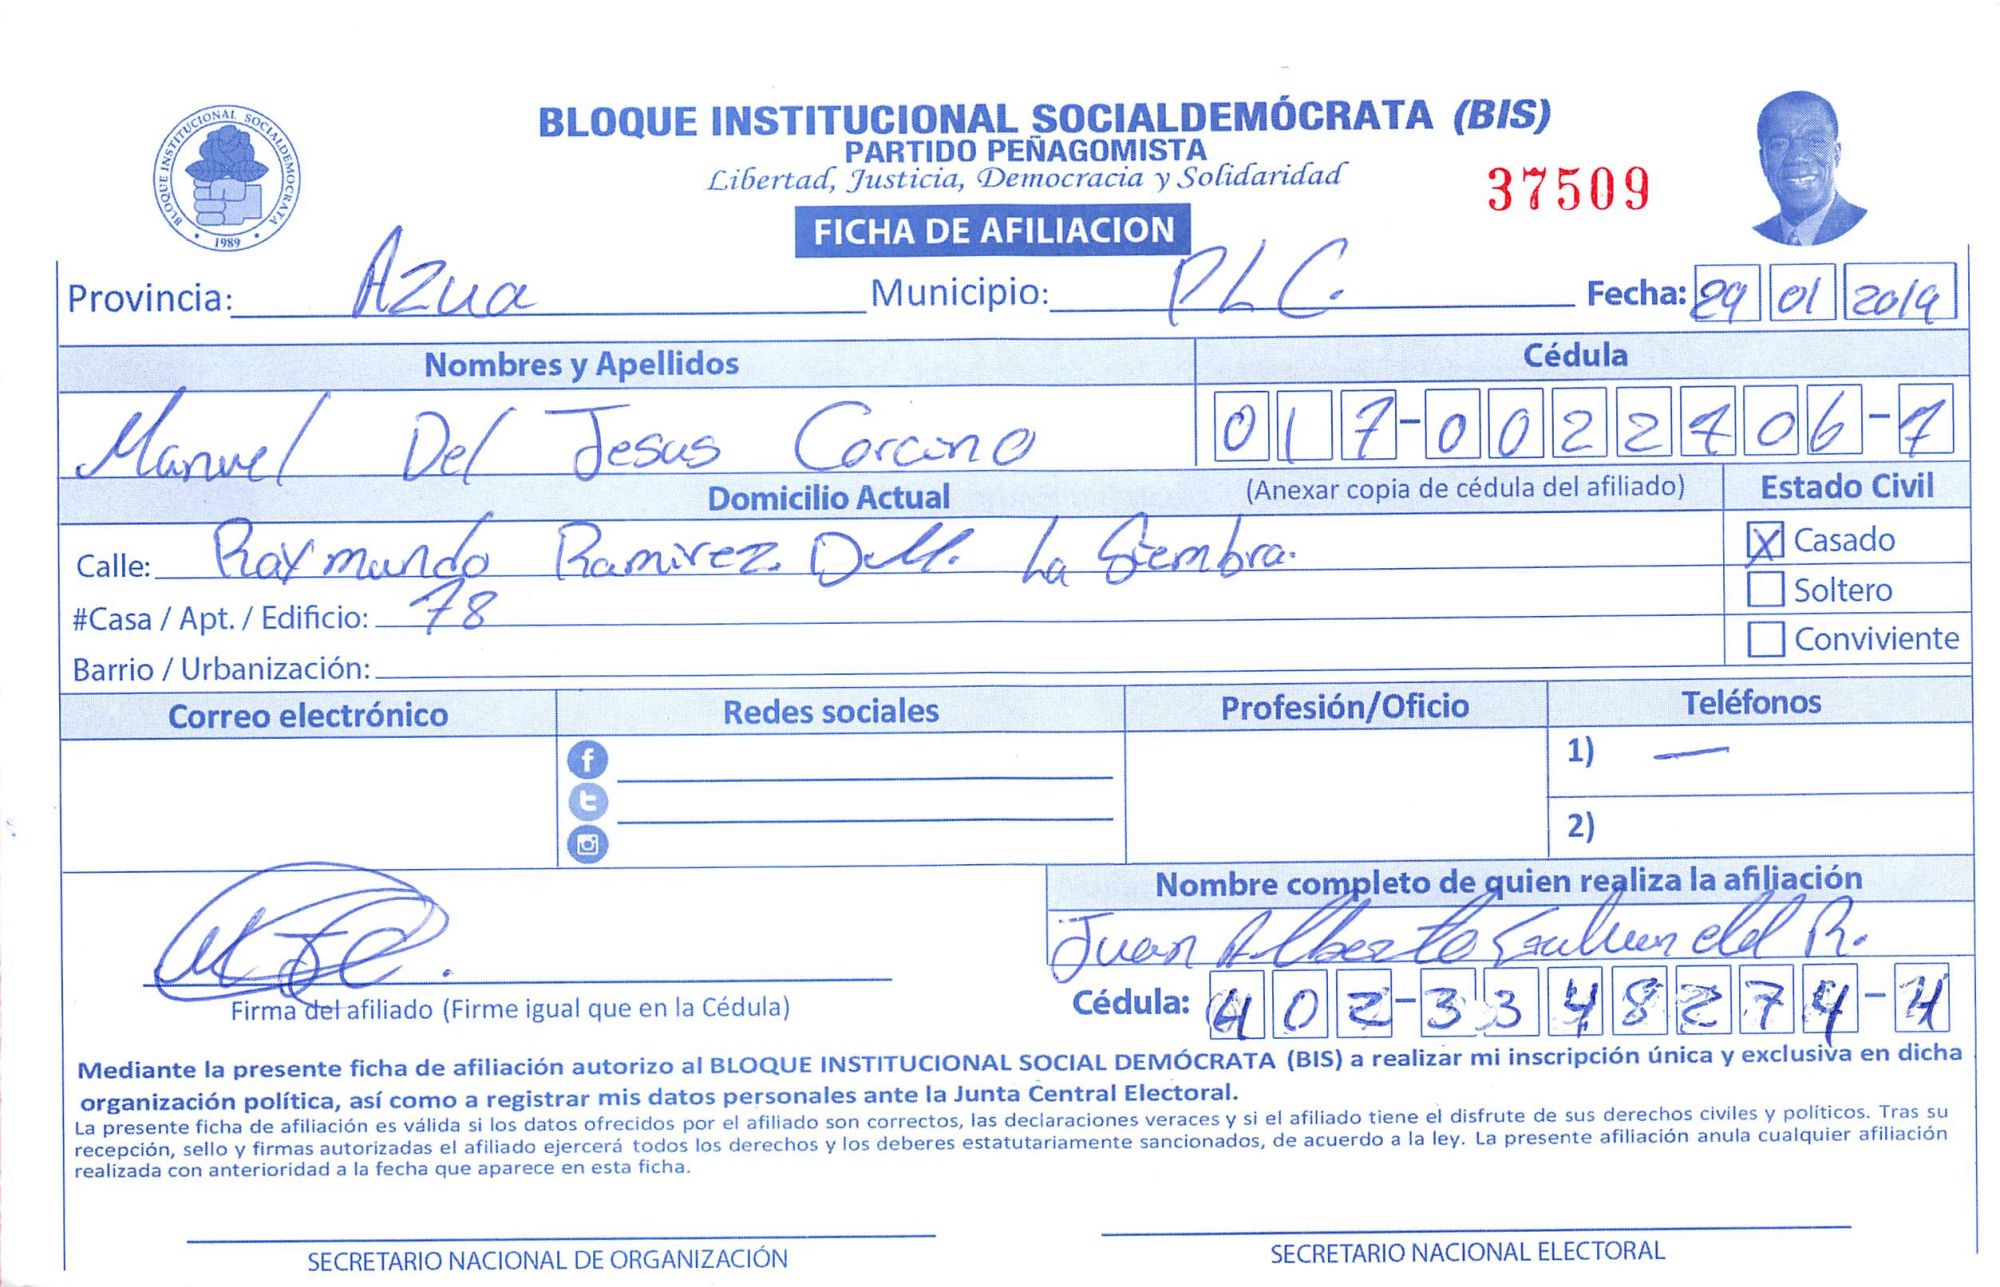 BLOQUE INSTITUCIONAL SOCIALDEMÓCRATA
1989
BLOQUE INSTITUCIONAL SOCIALDEMÓCRATA (BIS)
PARTIDO PEÑAGOMISTA
Libertad, Justicia, Democracia y Solidaridad
37509
FICHA DE AFILIACION
Provincia: Azua Municipio: PLC. Fecha: 29 01 2019
Nombres y Apellidos Cédula
Manuel Del Jesus Corcino 017-0022706-7
Domicilio Actual (Anexar copia de cédula del afiliado) Estado Civil
Calle: Raymundo Ramirez. La Siembra. X Casado
#Casa / Apt. / Edificio: 78 Soltero
Barrio / Urbanización: Conviviente
Correo electrónico Redes sociales Profesión/Oficio Teléfonos
1) —
2)
Nombre completo de quien realiza la afiliación
Juan Alberto R.
Firma del afiliado (Firme igual que en la Cédula) Cédula: 402-3348274-4
Mediante la presente ficha de afiliación autorizo al BLOQUE INSTITUCIONAL SOCIAL DEMÓCRATA (BIS) a realizar mi inscripción única y exclusiva en dicha
organización política, así como a registrar mis datos personales ante la Junta Central Electoral.
La presente ficha de afiliación es válida si los datos ofrecidos por el afiliado son correctos, las declaraciones veraces y si el afiliado tiene el disfrute de sus derechos civiles y políticos. Tras su
recepción, sello y firmas autorizadas el afiliado ejercerá todos los derechos y los deberes estatutariamente sancionados, de acuerdo a la ley. La presente afiliación anula cualquier afiliación
realizada con anterioridad a la fecha que aparece en esta ficha.
SECRETARIO NACIONAL DE ORGANIZACIÓN SECRETARIO NACIONAL ELECTORAL